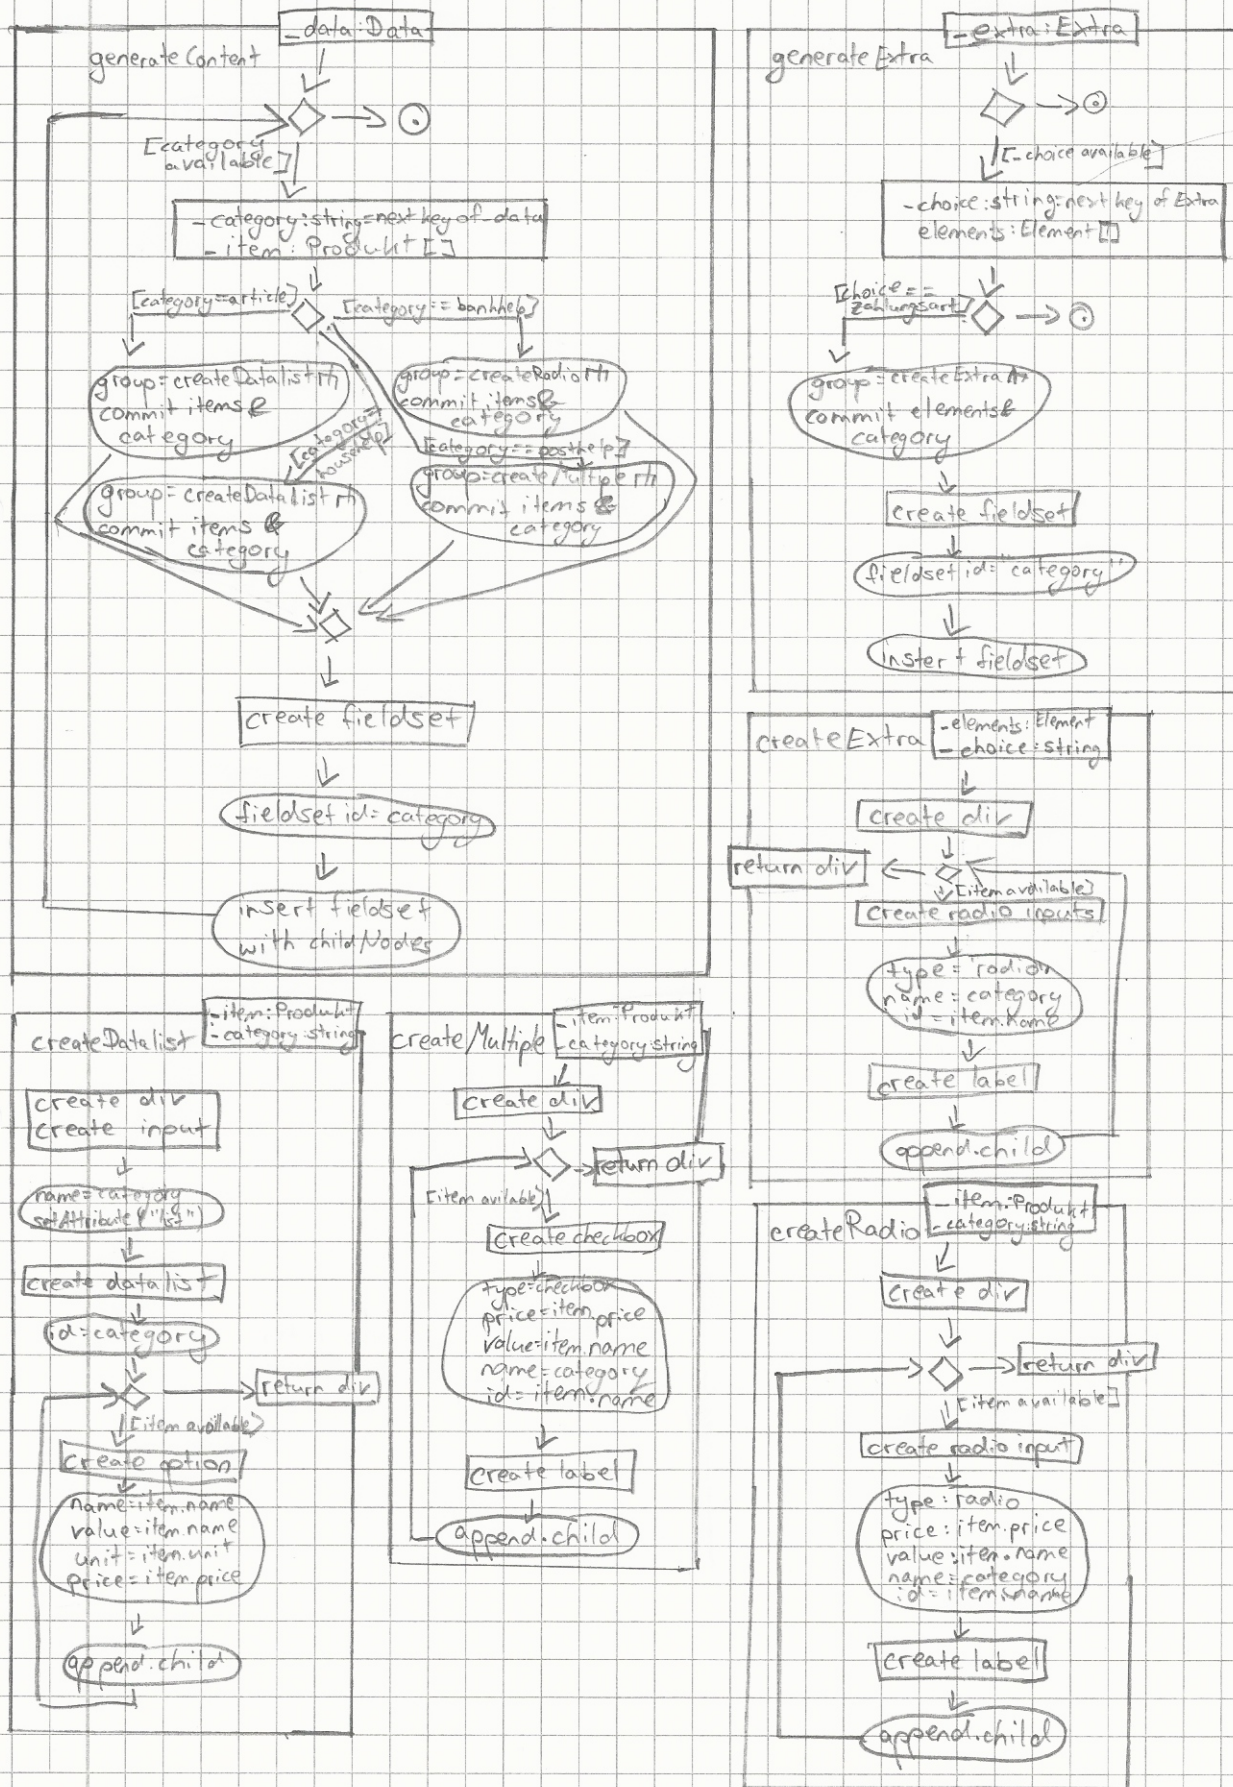 _data:Data
generateContent
[category
available]
-category:string=next key of_data
-item: Produkt []
[category=article]
[category==bankhelp]
group=createDatalist
commit items&
category
group=createRadio
commit items&
category
[category=
househelp]
[category==posthelp]
group=createDatalist
commit items &
category
group=createMultiple
commit items &
category
create fieldset
fieldset id=category
insert fieldset
with childNodes
-extra:Extra
generateExtra
[-choice available]
-choice:string=next key of Extra
elements:Element[]
[choice==
zahlungsart]
group=createExtra
commit elements&
category
create fieldset
fieldset id="category"
instert fieldset
createExtra
-elements:Element
-choice:string
create div
return div
[item available]
create radio inputs
type="radio"
name=category
id=item.name
create label
append.child
-item:Produkt
-category:string
createDatalist
create div
create input
name=category
setAttribute("list")
create datalist
id=category
return div
[item available]
create option
name=item.name
value=item.name
unit=item.unit
price=item.price
append.child
-item:Produkt
-category:string
createMultiple
create div
return div
[item avilable]
create checkbox
type=checkbox
price=item.price
value=item.name
name=category
id=item.name
create label
append.child
-item:Produkt
-category:string
createRadio
create div
return div
[item available]
create radio input
type:radio
price:item.price
value:item.name
name=category
id=item.name
create label
append.child